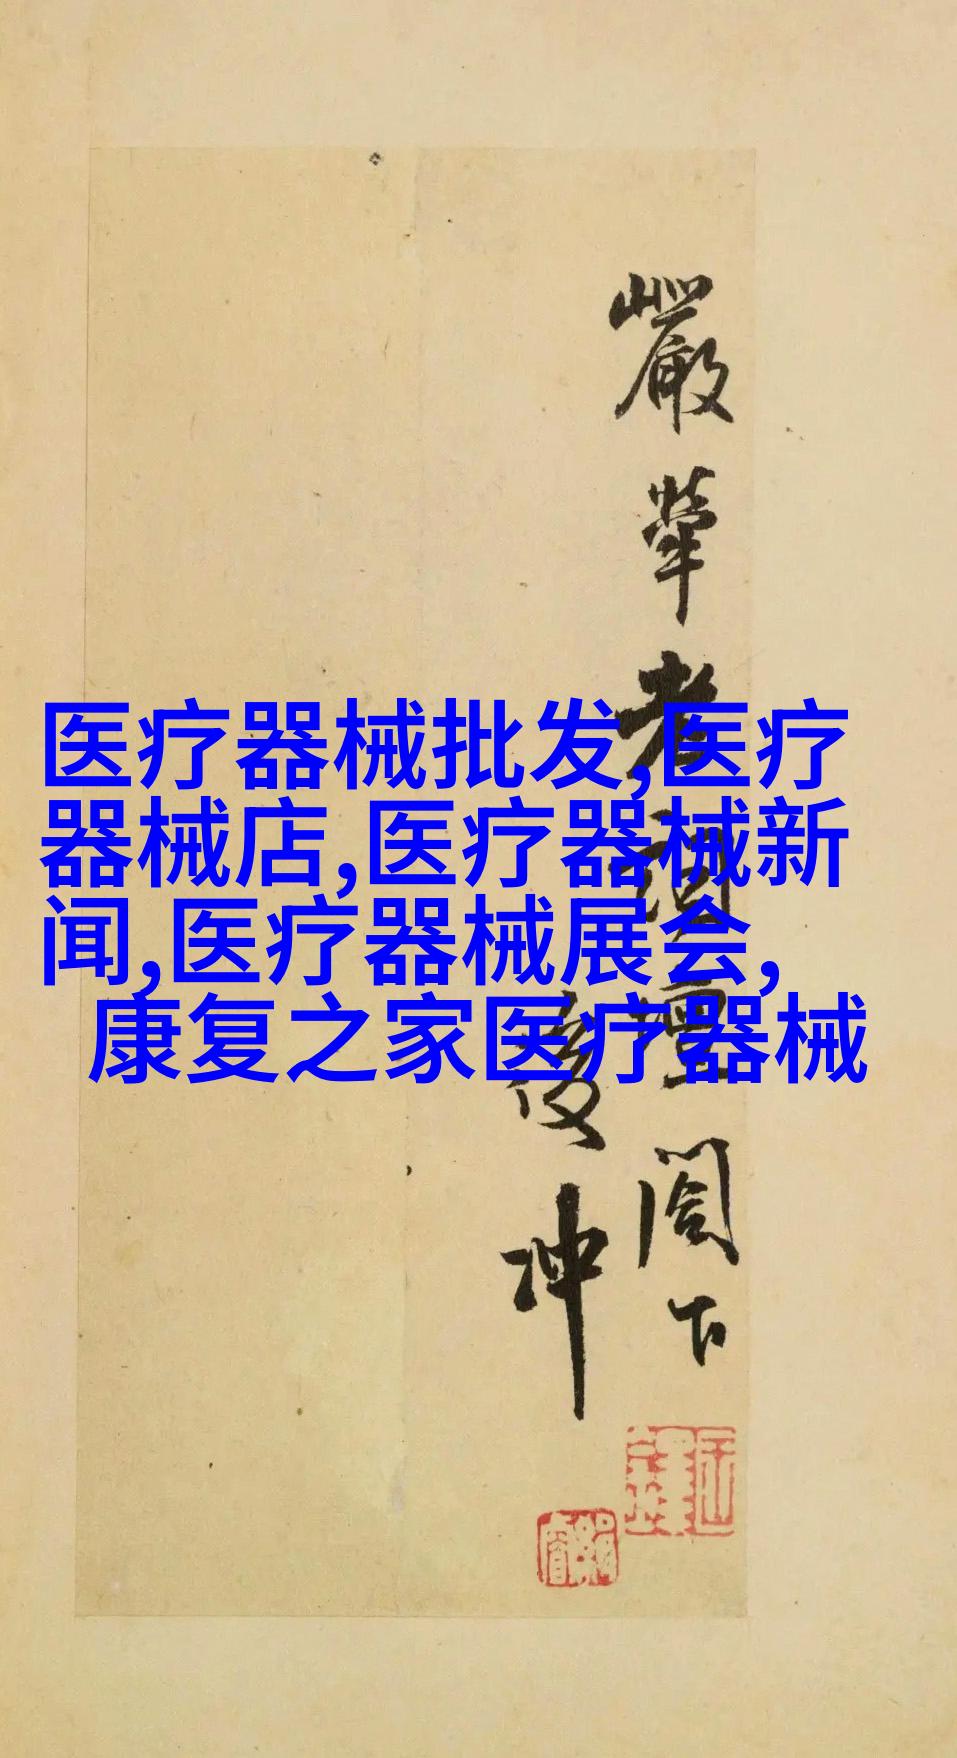 嚴犖老調壇閣下
後冲
医疗器械批发,医疗
器械店,医疗器械新
闻,医疗器械展会,
康复之家医疗器械